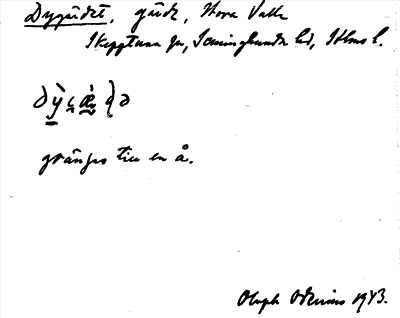 Dygärdet, gärde, Stora Valla
Skepptuna sn, Seminghundra hd, Sthms l.
gränsar till en å.
Oloph Odenius 1943.